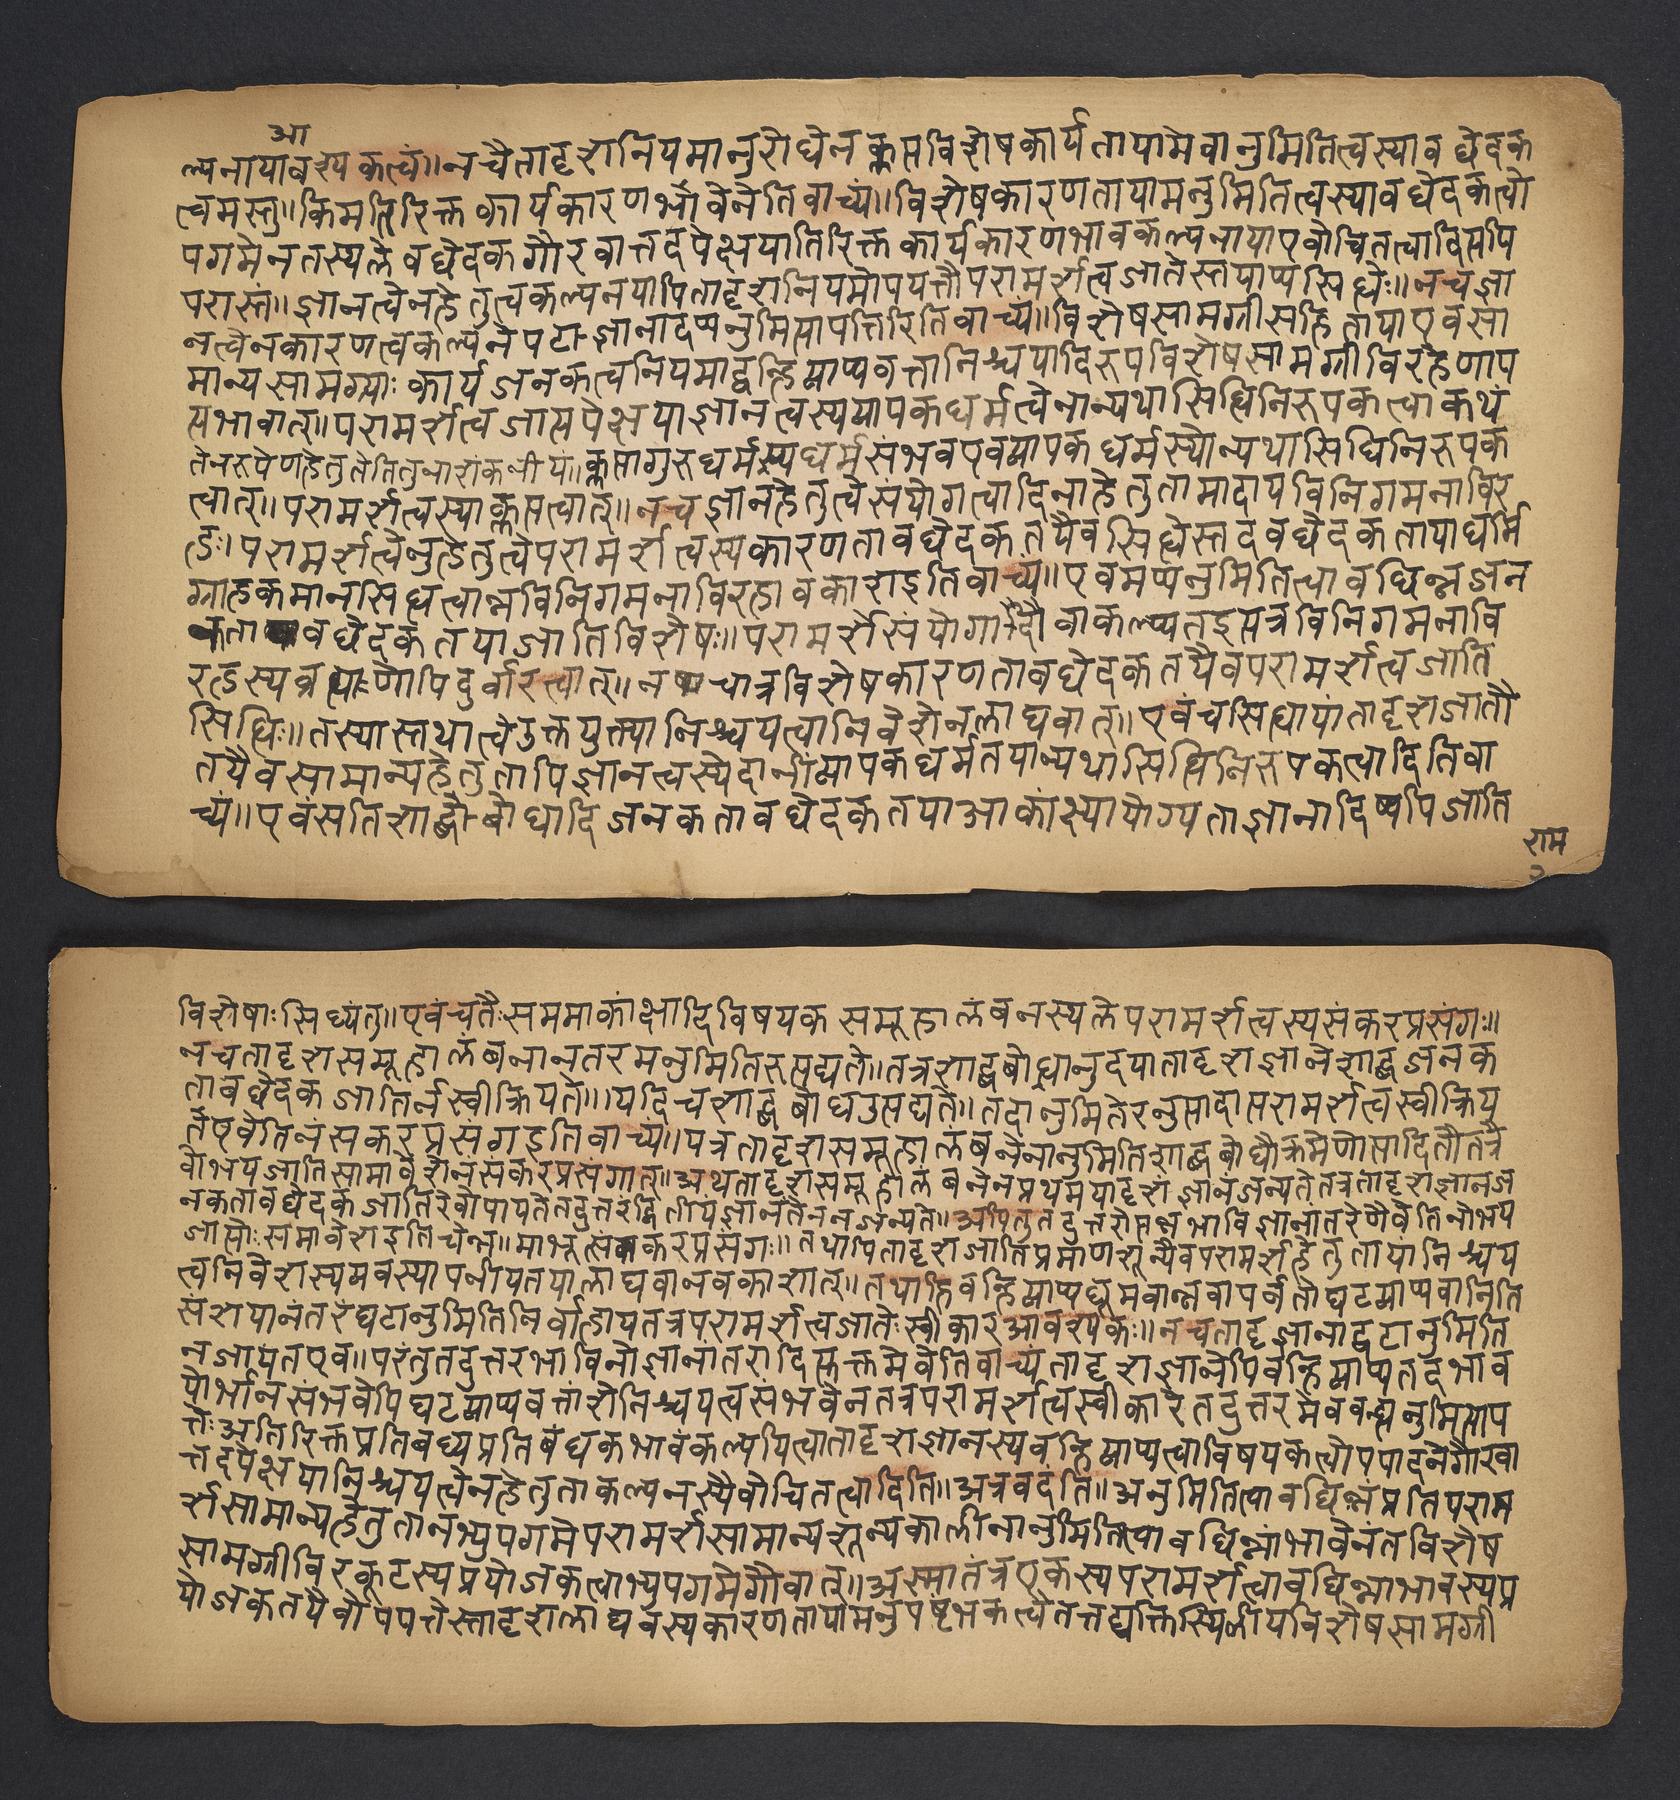 आ
ल्पनायावश्यकत्वं॥नचैतादृशनियमानुरोधेनक्लृप्तविशेषकार्यतायामेवानुमितित्वस्यावछेदक
त्वमस्तु॥किमतिरिक्तकार्यकारणभावेनेतिवाच्यं॥विशेषकारणतायामनुमितित्वस्यावछेदकत्वो
पगमेनतस्यलेवछेदकगौरवात्तदपेक्षयातिरिक्तकार्यकारणभावकल्पनायाएवोचितत्वादित्यपि
परास्तं॥ज्ञानत्वेनहेतुत्वकल्पनयापितादृशनियमोपपत्तौपरामर्शत्वजातेस्तयाप्यसिद्धेः॥नचज्ञा
नत्वेनकारणत्वकल्पनेपटाज्ञानादप्यनुमित्यापत्तिरितिवाच्यं॥विशेषसामग्रीसहितायाएवसा
मान्यसामग्र्याः कार्यजनकत्वनियमाद्वन्हिव्याप्यवत्तानिश्चयादिरूपविशेषसामग्रीविरहेणाप
त्यभावात्॥परामर्शत्वजात्यपेक्षयाज्ञानत्वस्यव्यापकधर्मत्वेनान्यथासिद्धिनिरूपकत्वाकथं
तेनरूपेणहेतुतेतितुनाशंकनीयं॥क्लृप्तागुरुधर्मस्यधर्मसंभवएवव्यापकधर्मस्यान्यथासिधिनिरूपक
त्वात्॥परामर्शत्वस्याक्लृप्तत्वात्॥नचज्ञानहेतुत्वेसंयोगत्वादिनाहेतुतामादायविनिगमनाविर
हः।परामर्शत्वेनुहेतुत्वेपरामर्शत्वस्यकारणतावछेदकतयैवसिद्धेस्तदवछेदकतायाधर्मि
ग्राहकमानसिद्धत्वान्नविनिगमनाविरहावकाशइतिवाच्यं॥एवमप्यनुमितित्वावछिन्नजन
कतावछेदकतयाजातिविशेषः॥परामर्शेसंयोगादौवाकल्प्यतइत्यत्रविनिगमनावि
रहस्यब्रह्मणापिदुर्वारत्वात्॥नचात्रविशेषकारणतावछेदकतयैवपरामर्शत्वजाति
सिद्धिः॥तस्यास्तथात्वेउक्तयुक्त्यानिश्चयत्वानिवेशेनलाघवात्॥एवंचसिधायांतादृशजातौ
तयैवसामान्यहेतुतापिज्ञानत्वस्येदानींव्यापकधर्मतयान्यथासिद्धिनिरूपकत्वादितिवा
च्यं॥एवंसतिशाब्दबोधादिजनकतावछेदकतयाआकांक्षायोग्यताज्ञानादिष्वपिजाति
राम
२
विशेषाःसिध्यंतु॥एवंचतैःसममाकांक्षादिविषयकसमूहालंबनस्यलेपरामर्शत्वस्यसंकरप्रसंगः॥
नचतादृशसमूहालंबनानंतरमनुमितिरुत्पद्यते॥तत्रशाब्दबोधानुदयातादृशज्ञानेशाब्दजनक
तावछेदकजातिर्नस्वीक्रियते॥यदिचशाब्दबोधउत्पद्यते॥तदानुमितेरनुत्पादात्परामर्शत्वस्वीक्रिय
तेएवेतिनसंकरप्रसंगइतिवाच्यं॥यत्रतादृशसमूहालंबनेनानुमितिशाब्दबोधौक्रमेणोत्पादितौतत्रै
वोभयजातिसामावेशेनसंकरप्रसंगात्॥अथतादृशसमूहालंबनेनप्रथमयादृशंज्ञानंजन्यतेतत्रतादृशज्ञानज
नकतावछेदकजातिरेवोपायतेतदुत्तरंद्वितीयंज्ञानंतेननजन्यते॥अपितुतदुत्तरोत्पन्नभाविज्ञानांतरेणैवेतिनोभय
जात्योःसमावेशइतिचेन्न॥माभूत्संकरप्रसंगः॥तथापितादृशजातिप्रमाणशून्यैवपरामर्शहेतुतायांनिश्चय
त्वनिवेशस्यव्यवस्यापनीयतयालाघवानवकाशात्॥तथाहिवन्हिव्याप्यधूमवान्नवापर्वतोघटव्याप्यवानिति
संशयानंतरंघटानुमितिनिर्वाहायतत्रपरामर्शत्वजातेःस्वीकारआवश्यकः॥नचतादृज्ञानाद्घटानुमिति
नजायतएव॥परंतुतदुत्तरभाविनोज्ञानांतरादित्युक्तमेवेतिवाच्यंतादृशज्ञानेपिवन्हिव्याप्यतदभाव
योर्भानसंभवेपिघटव्याप्यवत्तांशेनिश्चयत्वसंभवेनतत्रपरामर्शत्वस्वीकारेतदुत्तरमेववन्ह्यनुमित्याप
त्तेःअतिरिक्तप्रतिबध्यप्रतिबंधकभावंकल्पयित्वातादृशज्ञानस्यवन्हिव्याप्यत्वाविषयकत्वोपपादनेगौरवा
त्तदपेक्षयानिश्चयत्वेनहेतुताकल्पनस्यैवोचितत्वादिति॥अत्रवदंति॥अनुमितित्वावछिन्नंप्रतिपराम
र्शसामान्यहेतुतानभ्युपगमेपरामर्शसामान्यशून्यकालीनानुमितित्वावछिन्नाभावेनंतविशेष
सामग्रीविरकूटस्यप्रयोजकत्वाभ्युपगमेगौवात्॥अस्मातंत्रएकस्यपरामर्शत्वावछिन्नाभावस्यप्र
योजकतयैवोपपत्तेस्तादृशलाघवस्यकारणतायामनुपष्टंभकत्वेतत्तद्व्यक्तिस्थिलीयविशेषसामग्री